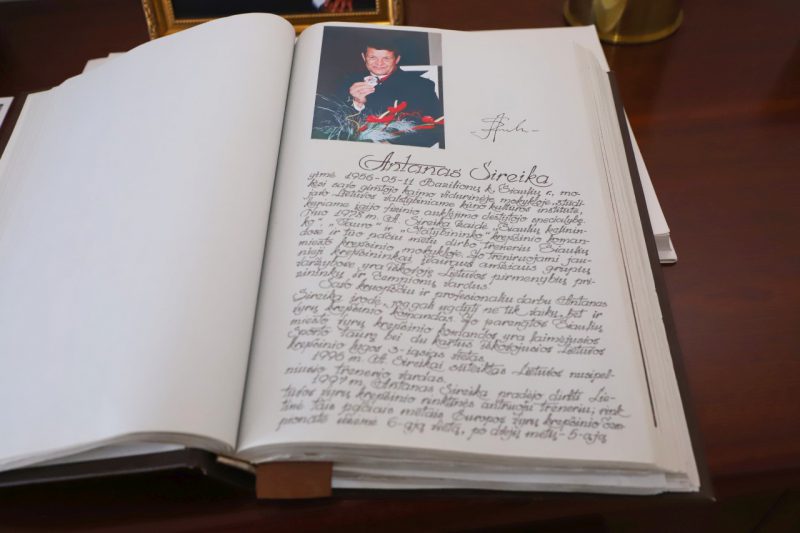 Antanas Sireika
gimė 1956-05-11 Bazilionų k., Šiaulių r., mo-
kėsi savo gimtojo kaimo vidurinėje mokykloje, studi-
javo Lietuvos valstybiniame kūno kultūros institute,
kuriame įgijo fizinio auklėjimo dėstytojo specialybę.
Nuo 1978 m. A. Sireika žaidė „Šiaulių
ko", „Tauro" ir „Statybininko" krepšinio koman-
dose ir tuo pačiu metu dirbo treneriu Šiaulių
miesto krepšinio mokykloje. Jo treniruojami jau-
nieji krepšininkai įvairaus amžiaus grupių
varžybose yra iškovoję Lietuvos pirmenybių pri-
zininkų ir čempionų vardus.
Savo kruopščiu ir profesionaliu darbu Antanas
Sireika įrodė, jog gali ugdyti ne tik vaikų, bet ir
vyrų krepšinio komandas. Jo parengtos Šiaulių
miesto vyrų krepšinio komandos yra laimėjusios
Sporto taurę bei du kartus iškovojusios Lietuvos
krepšinio lygos 3-iąsias vietas.
1996 m. A. Sireikai suteiktas Lietuvos nusipel-
niusio trenerio vardas.
1997 m. Antanas Sireika pradėjo dirbti Lie-
tuvos vyrų krepšinio rinktinės antruoju treneriu; rink-
tinė tais pačiais metais Europos vyrų krepšinio čem-
pionate užėmė 6-ąją vietą, po dvejų metų - 5-ąją